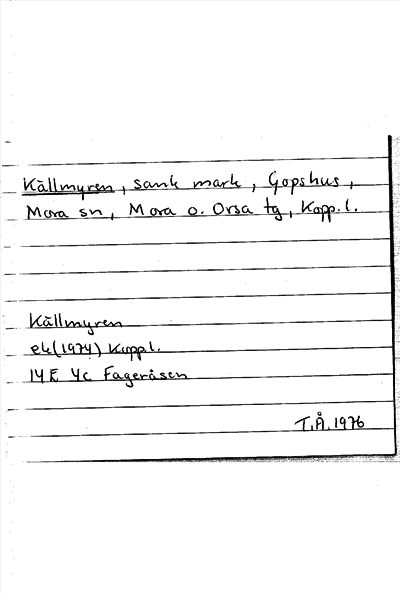 Källmyren, sank mark, Gopshus,
Mora sn, Mora o. Orsa tg, Kopp.l.
Källmyren
ek(1974) Kopp.l.
14E 4c Fageråsen
T.Å. 1976